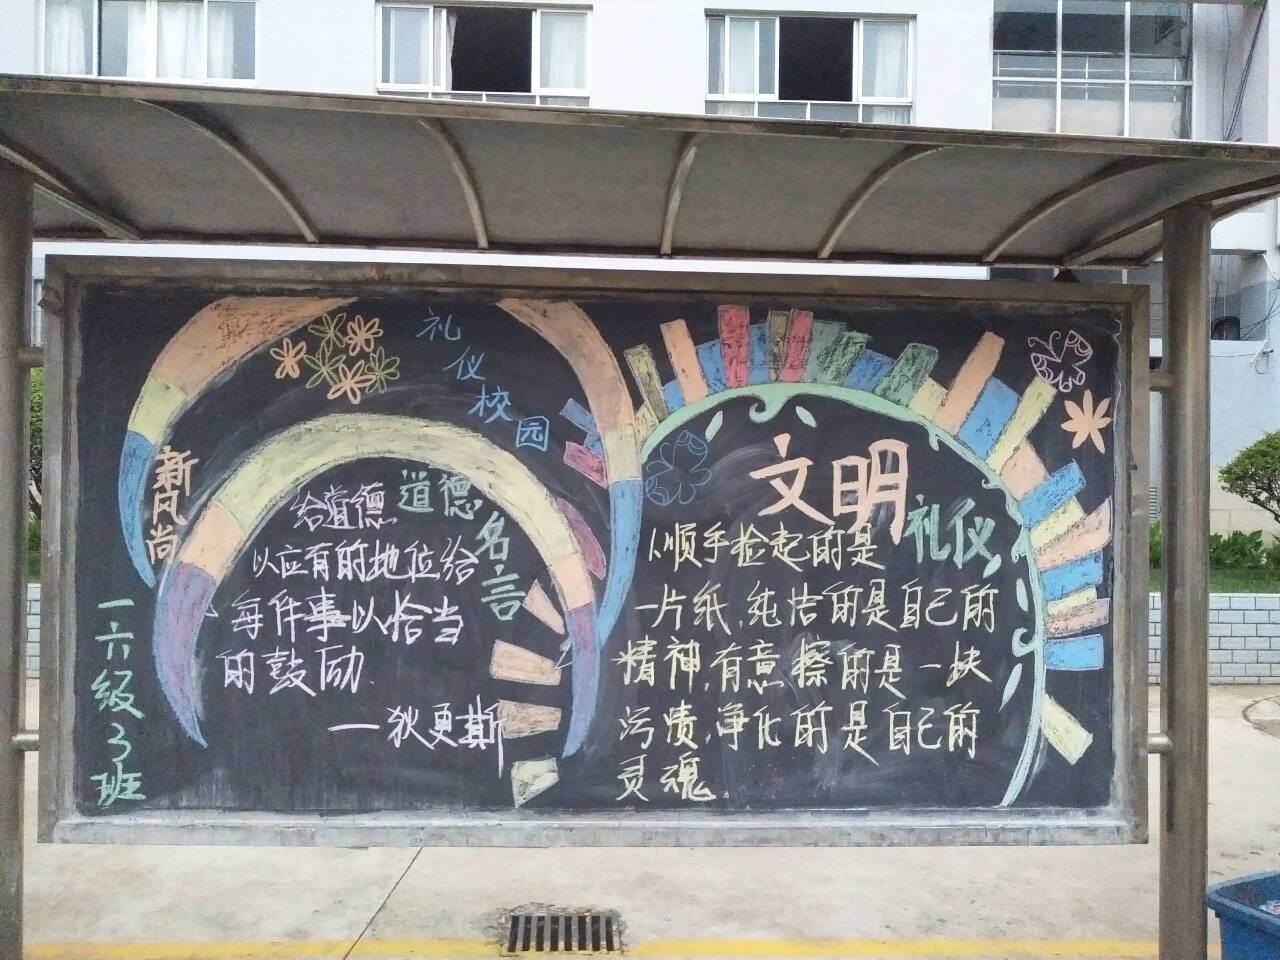 礼仪校园
新风尚
道德名言
给道德
以应有的地位给
每件事以恰当
的鼓励.
—狄更斯
一六级3班
文明
礼仪
顺手捡起的是
一片纸,纯洁的是自己的
精神,有意擦的是一块
污渍,净化的是自己的
灵魂.